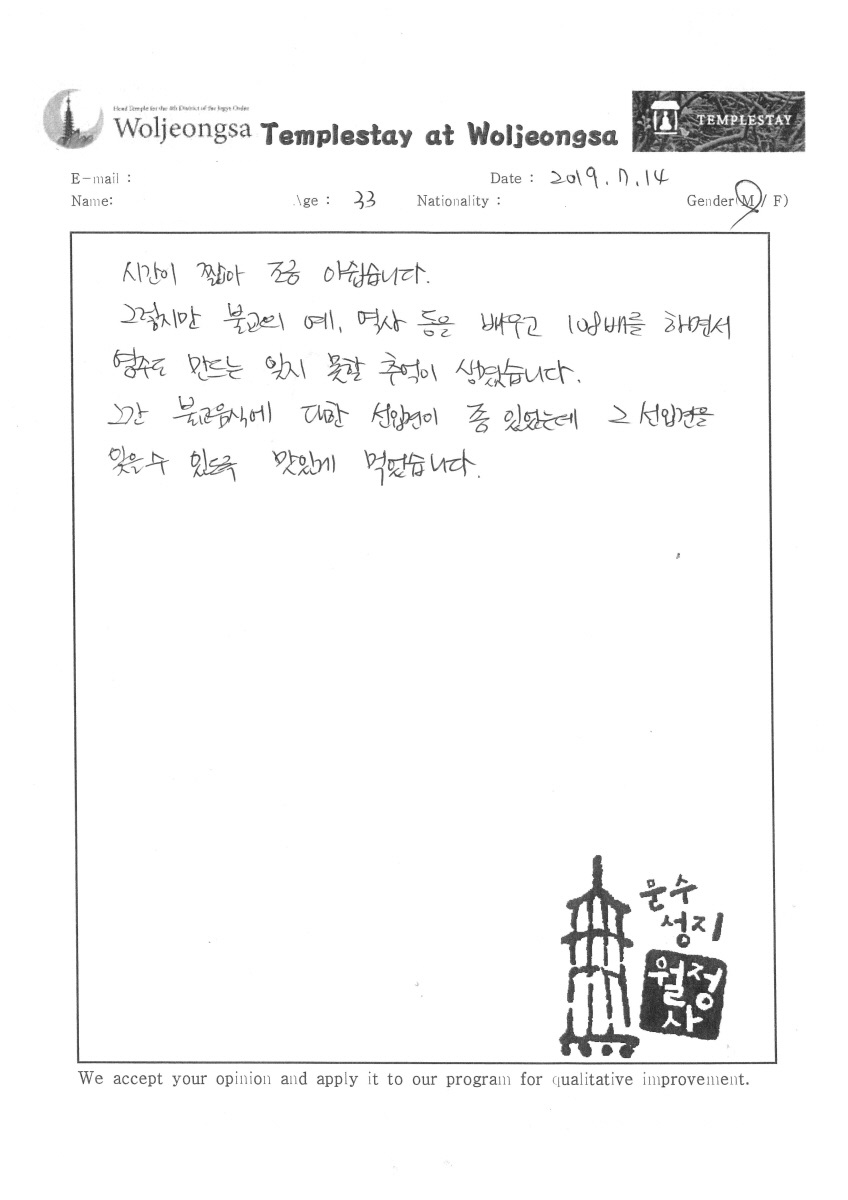 Head Temple for the 4th District of the Jogye Order
Woljeongsa Templestay at Woljeongsa
TEMPLESTAY
E-mail :
Date : 2019. 7. 14
Name:
Age : 33
Nationality :
Gender(M / F)
시간이 짧아 조금 아쉽습니다.
그렇지만 불교의 예, 역사 등을 배우고 108배를 하면서
염주도 만드는 잊지 못할 추억이 생겼습니다.
그간 불교음식에 대한 선입견이 좀 있었는데 그 선입견을
잊을 수 있도록 맛있게 먹었습니다.
문수
성지
월정
사
We accept your opinion and apply it to our program for qualitative improvement.